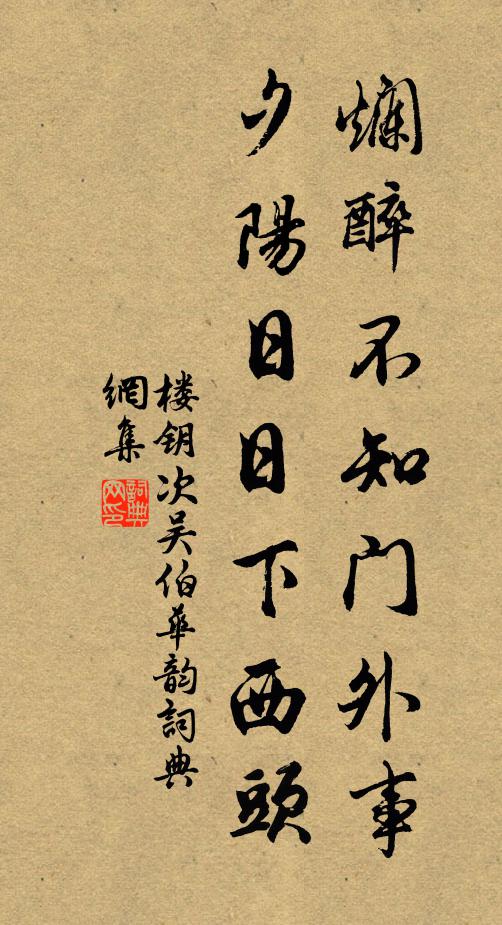 爛醉不知門外事
夕陽日日下西頭
楼钥次吴伯華韵詞典
網集
詞典
网印